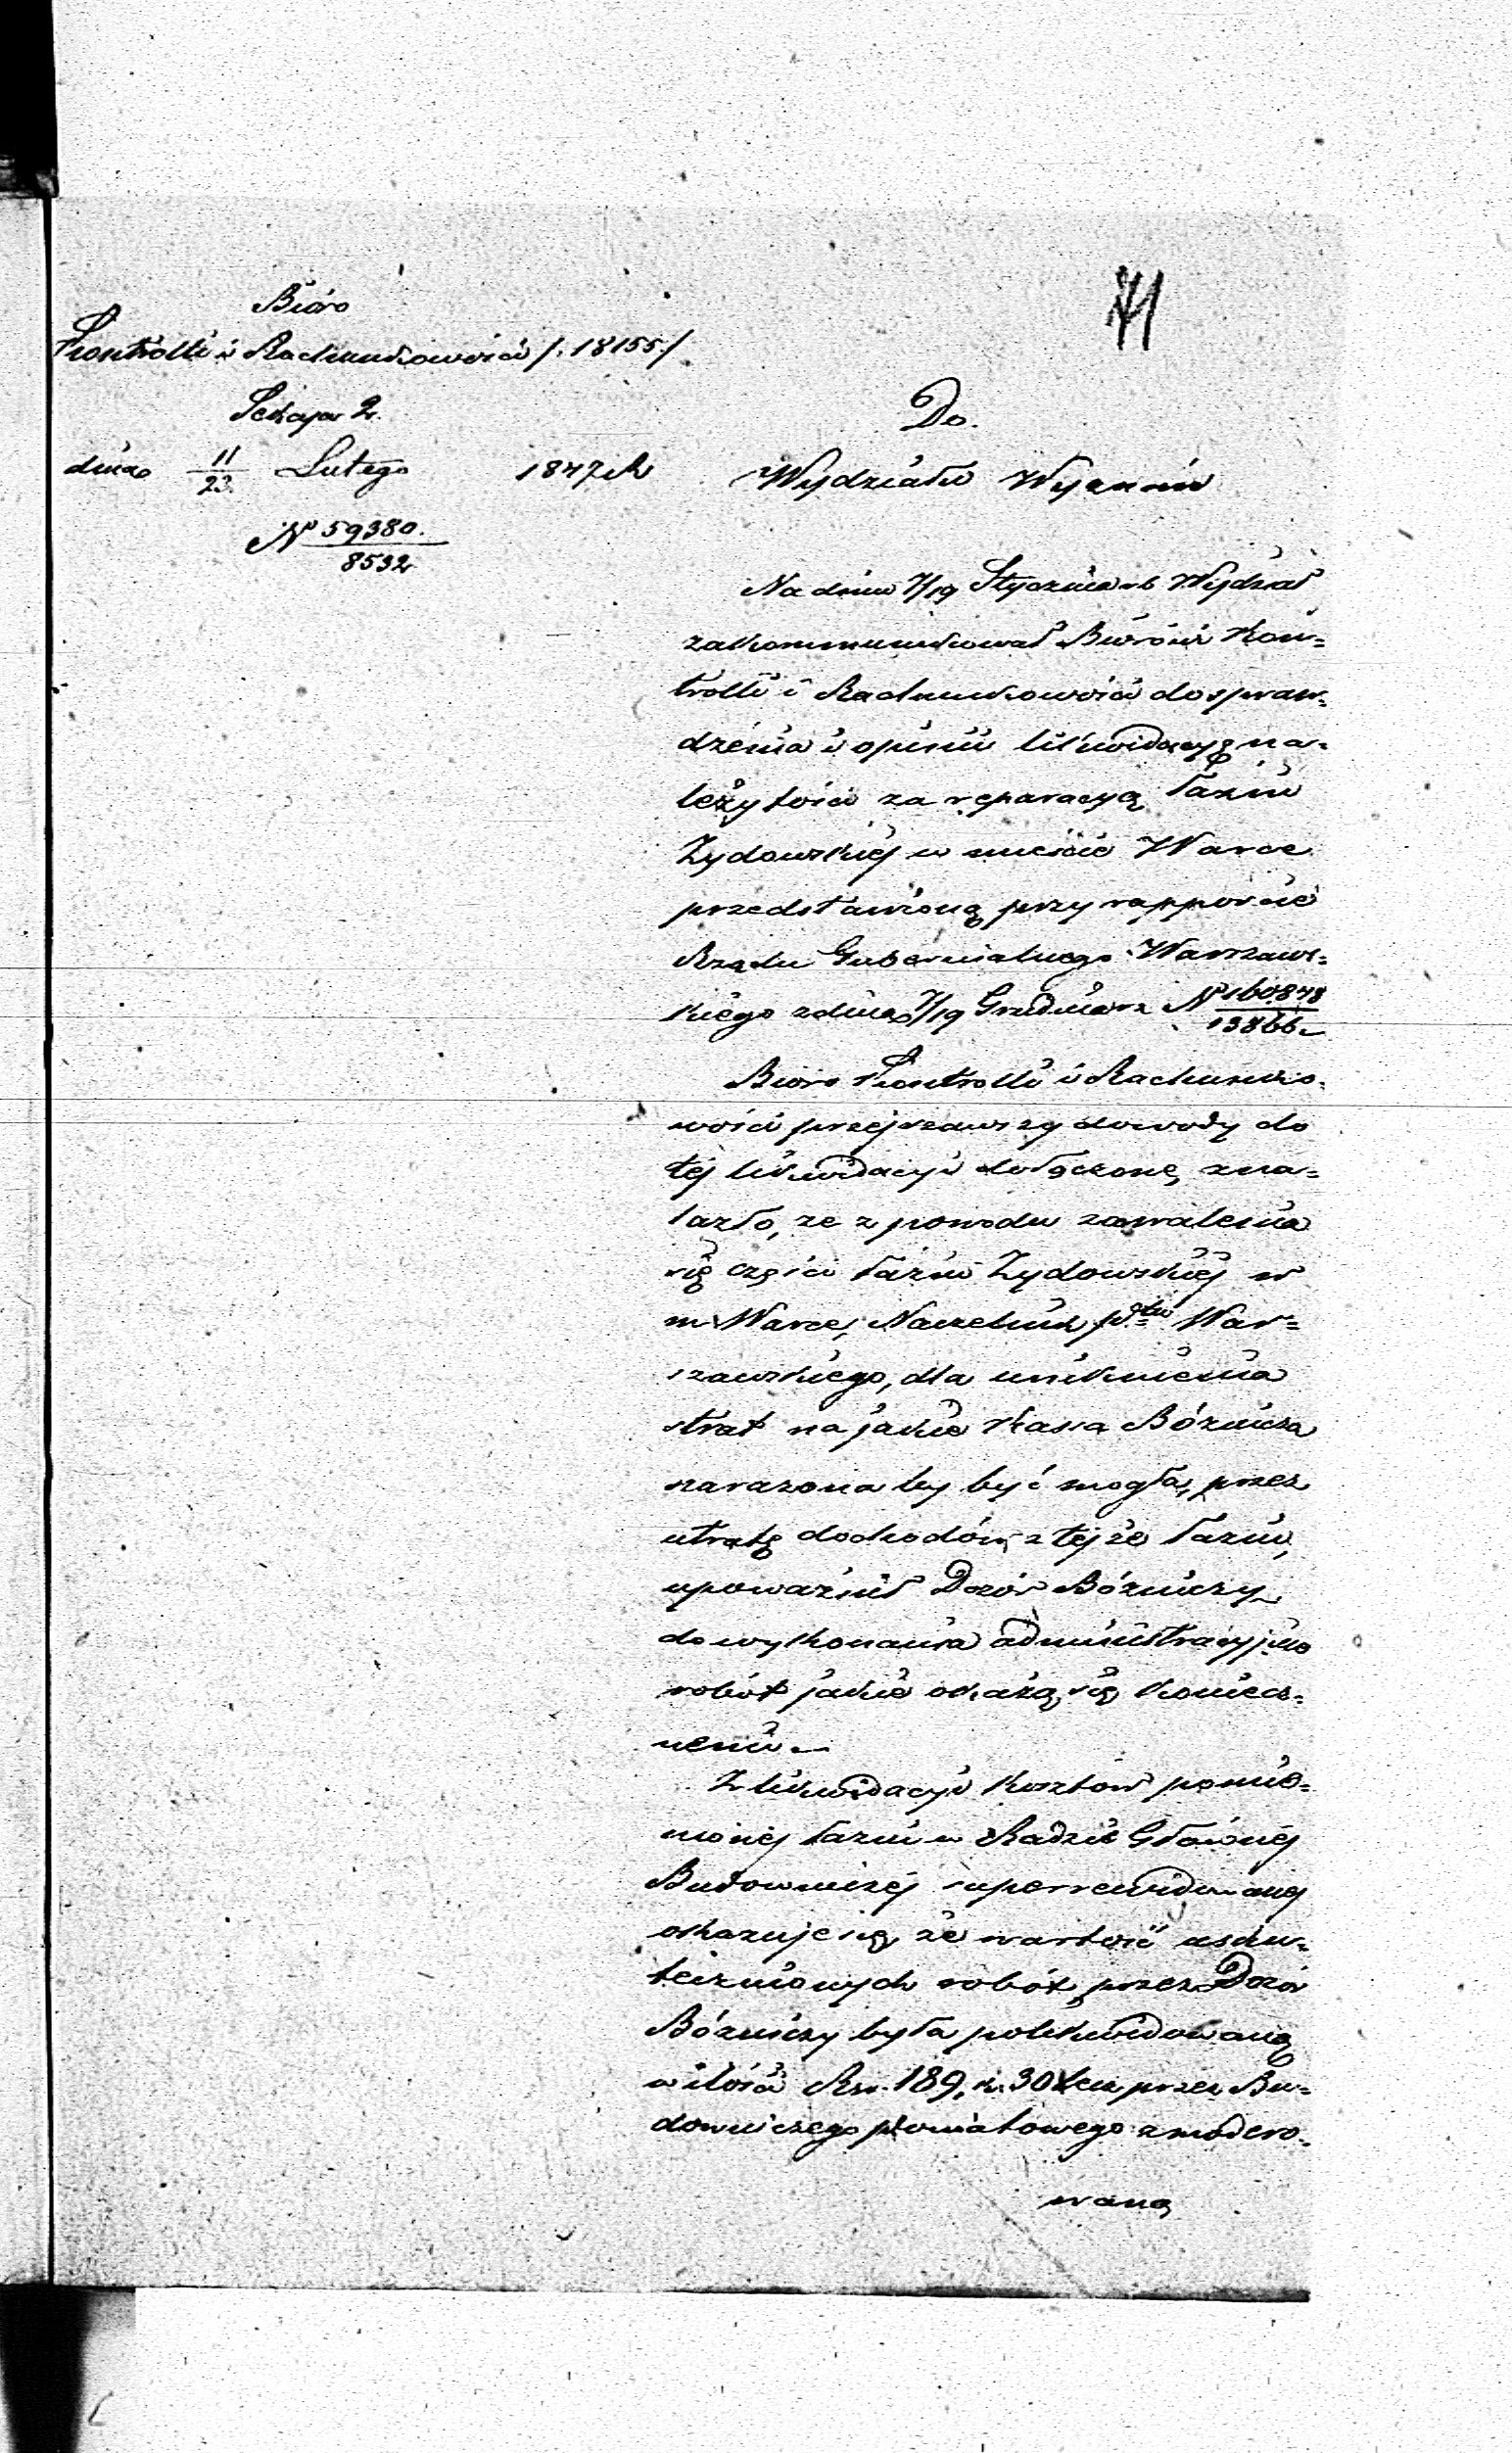 Biόro
Kontrolli i Rachunkowości /:18155:/
Sekcya 2.
dnia 11/23 Lutego 1847 R
№ 59380./8532
71
Do.
Wydziału Wyznań
Na dniu 7/19 Stycznia r b Wydział
zakommunikował Bióru Kon=
trolli i Rachunkowości do spraw=
dzenia i opinii likwidacyą na=
leżytości za reparacyą Łaźni
Żydowskiéj w mieście Warce
przedstawioną przy rapporcie
Rządu Gubernialnego Warszaws=
kiego z dnia 7/19 Grudnia r z № 160878/13866
Bióro Kontrolli i Rachunko=
wości przejrzawszy dowody do
téj likwidacyi dołączone, zna=
lazło, że z powodu zawalenia
się części łaźni Żydowskiéj w
m. Warce, Naczelnik p^tu War=
szawskiego, dla uniknienia
strat na jakie Kassa Bóżnicza
narażona by być mogła, przez
utratę dochodów z tejże Łaźni,
upoważnił Dozór Bóżniczy
do wykonania administracyjnie
robót jakie okażą się koniecz=
nemi.
Z likwidacyi kosztów pomie=
nionéj łaźni w Radzie Głównéj
Budowniczéj superrewidowanéj
okazuje się że wartość usku=
tecznionych robót przez Dozór
Bóżniczy była polikwidowaną
w ilości Rsr. 189, k. 30 przez Bu=
downiczego powiatowego zmodero=
waną